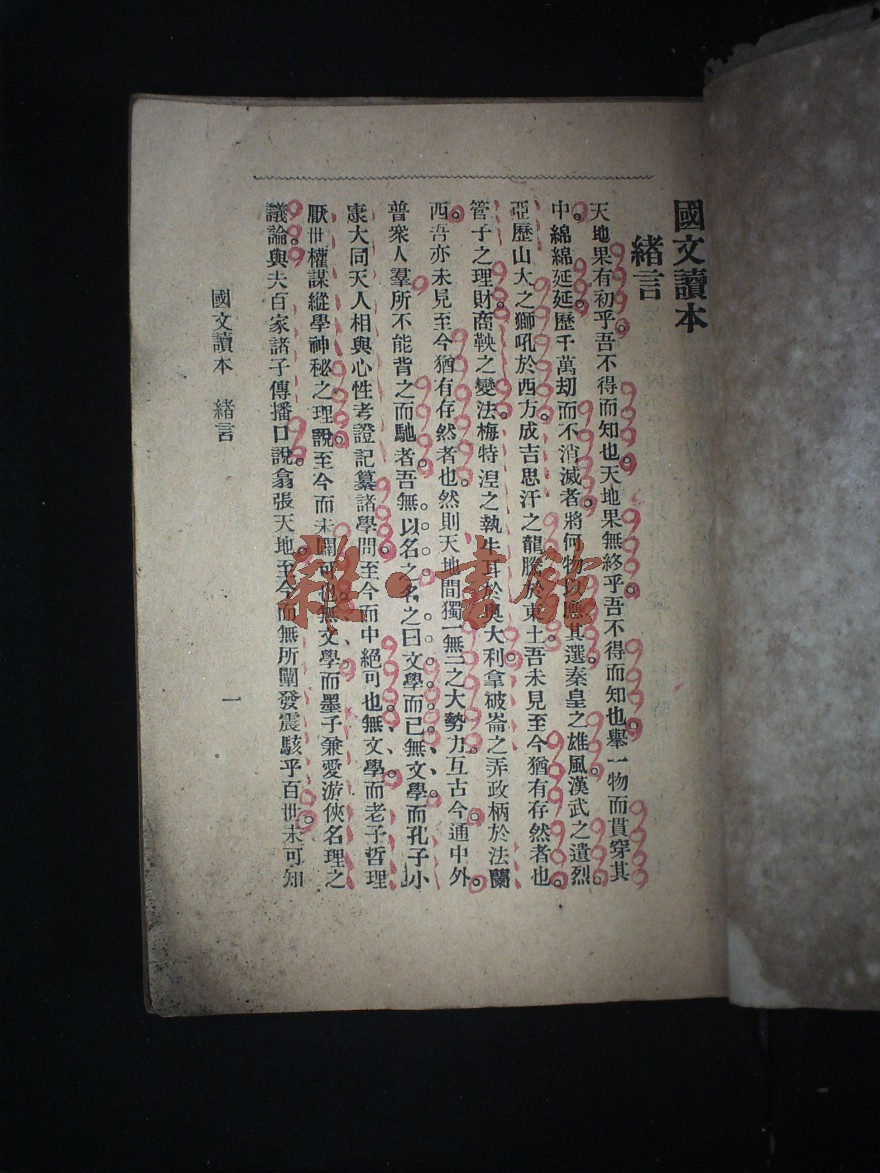 國文讀本
緒言
天地果有初乎吾不得而知也天地果無終乎吾不得而知也舉一物而貫穿其
中綿綿延延歷千萬刧而不消滅者將何物以應其選秦皇之雄風漢武之遺烈
亞歷山大之獅吼於西方成吉思汗之龍騰於東土吾未見至今猶有存然者也
管子之理財商鞅之變法梅特湼之執牛耳於奧大利拿破崙之弄政柄於法蘭
西吾亦未見至今猶有存然者也然則天地間獨一無二之大勢力互古今通中外
普衆人羣所不能背之而馳者吾無以名之名之曰文學而已無文學而孔子小
康大同天人相與心性考證記纂諸學問至今而中絕可也無文學而老子哲理
厭世權謀縱學神秘之理說至今而未聞可也無文學而墨子兼愛游俠名理之
議論與夫百家諸子傳播口說翕張天地至今而無所闡發震駭乎百世未可知
國文讀本 緒言
一
雜·書館